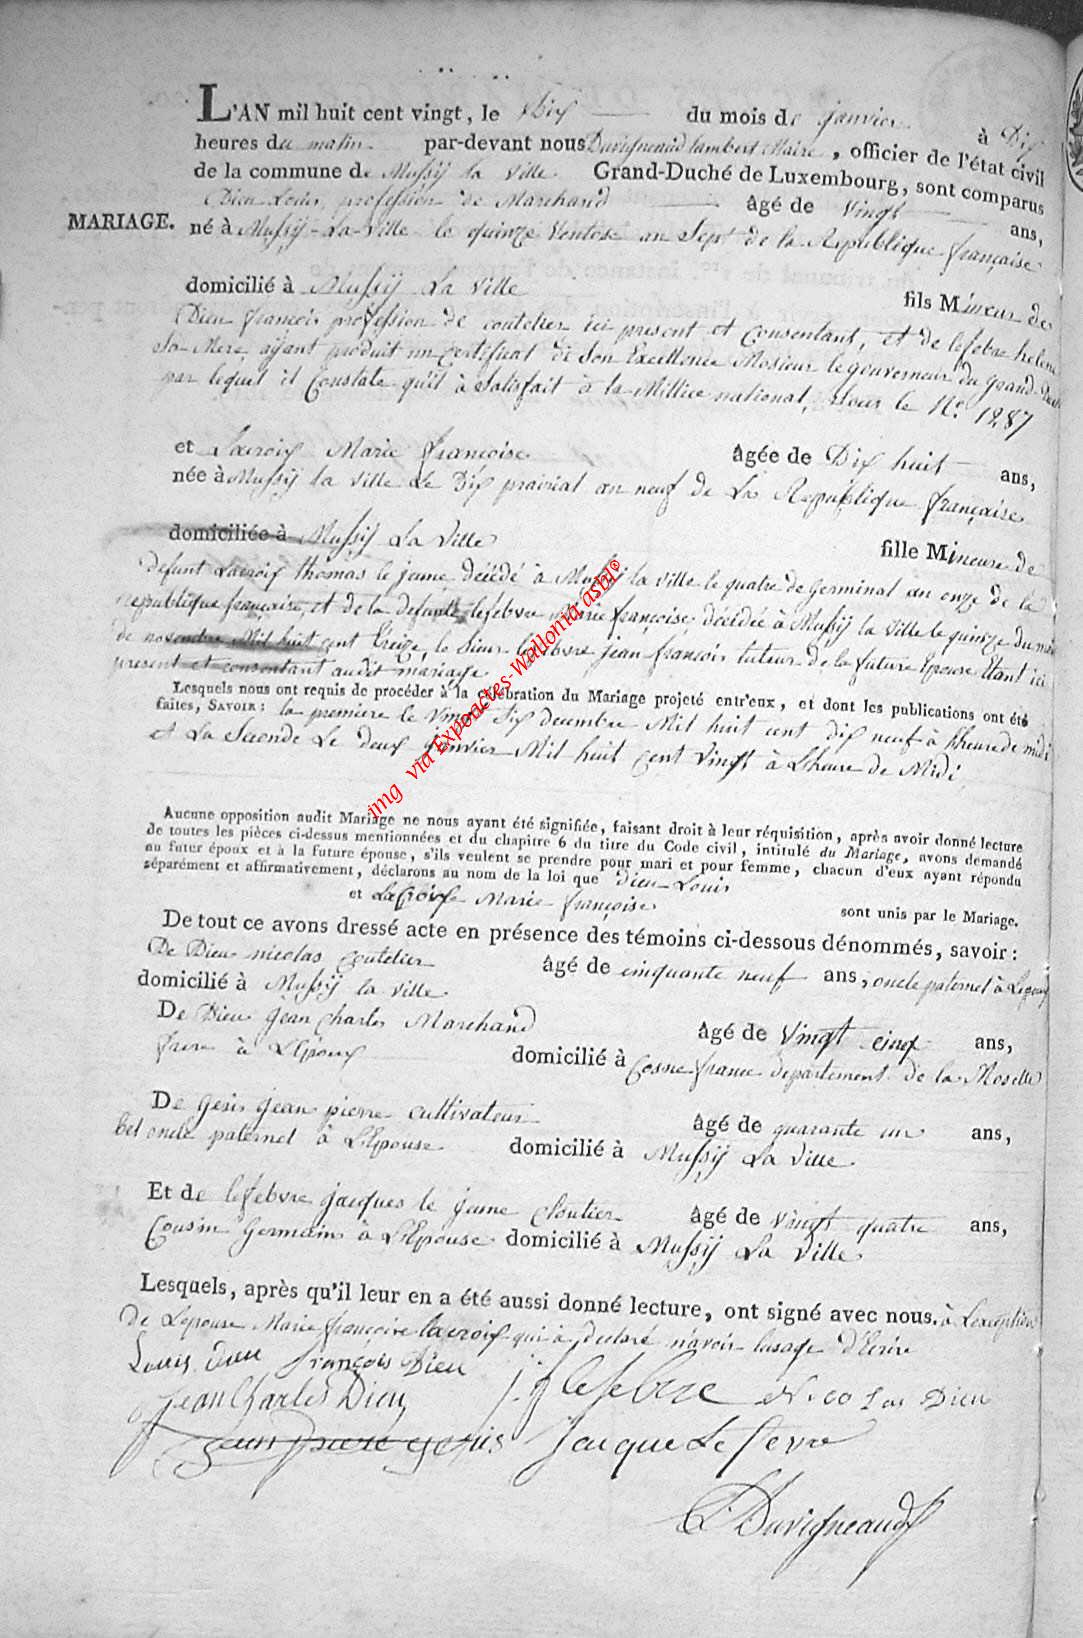 L'AN mil huit cent vingt, le Dix du mois de janvier à Dix
heures du matin par-devant nous Duvigneaud lambert Maire, officier de l'état civil
de la commune de Mussÿ la ville Grand-Duché de Luxembourg, sont comparus
Dieu Louis, profession de Marchand âgé de Vingt ans,
MARIAGE.
né à Mussÿ-La-Ville le quinze Ventose an Sept de la Republique française
domicilié à Mussÿ La Ville fils Mineur de
Dieu françois profession de coutelier ici present et Consentant, et de lefebvre helene
sa Mere, ayant produit un certificat de Son Excellence Mosieur le gouverneur du grand-Duché
par lequel il Constate qu'il à Satisfait à la Millice national, Sous le N.o 1287
et Lacroix Marie françoise âgée de Dix huit ans,
née à Mussÿ la ville le Dix prairial an neuf de La Republique française
domiciliée à Mussÿ La Ville fille Mineure de
defunt Lacroix thomas le jeune décédé à Mussÿ la ville le quatre de Germinal an onze de la
republique française, et de la defunte lefebvre Marie françoise décédée à Mussÿ la Ville le quinze du mois
de novembre Mil huit cent treize, le Sieur lefebvre jean françois tuteur de la future Epouse Etant ici
present et consentant audit mariage
Lesquels nous ont requis de procéder à la célébration du Mariage projeté entr'eux, et dont les publications ont été
faites, SAVOIR: la premiere le Vingt Six decembre Mil huit cent dix neuf à l'heure de midi
et La Seconde Le deux janvier Mil huit cent Vingt à L'heure de Midi
Aucune opposition audit Mariage ne nous ayant été signifiée, faisant droit à leur réquisition, après avoir donné lecture
de toutes les pièces ci-dessus mentionnées et du chapitre 6 du titre du Code civil, intitulé du Mariage, avons demandé
au futur époux et à la future épouse, s'ils veulent se prendre pour mari et pour femme, chacun d'eux ayant répondu
séparément et affirmativement, déclarons au nom de la loi que Dieu Louis
et LaCroix Marie françoise sont unis par le Mariage.
De tout ce avons dressé acte en présence des témoins ci-dessous dénommés, savoir:
De Dieu nicolas coutelier âgé de cinquante neuf ans, oncle paternel à L'epoux
domicilié à Mussÿ la ville
De Dieu jean charles Marchand âgé de Vingt cinq ans,
frere à L'Epoux domicilié à Cosne france departement de la Moselle
De Genis jean pierre cultivateur âgé de quarante un ans,
bel oncle paternel à L'Epouse domicilié à Mussÿ La ville
Et de lefebvre jacques le jeune cloutier âgé de vingt quatre ans,
Cousin Germain à L'Epouse domicilié à Mussÿ La Ville
Lesquels, après qu'il leur en a été aussi donné lecture, ont signé avec nous. à L'exception
de L'epouse Marie françoise lacroix qui à declaré n'avoir lusage d'Ecrire
Louis Dieu françois Dieu
jean Charles Dieu j. f lefebvre Nicolas Dieu
jean piere genis Jacque Le fevre
L. Duvigneaud
img via Expoactes-Wallonia asbl©